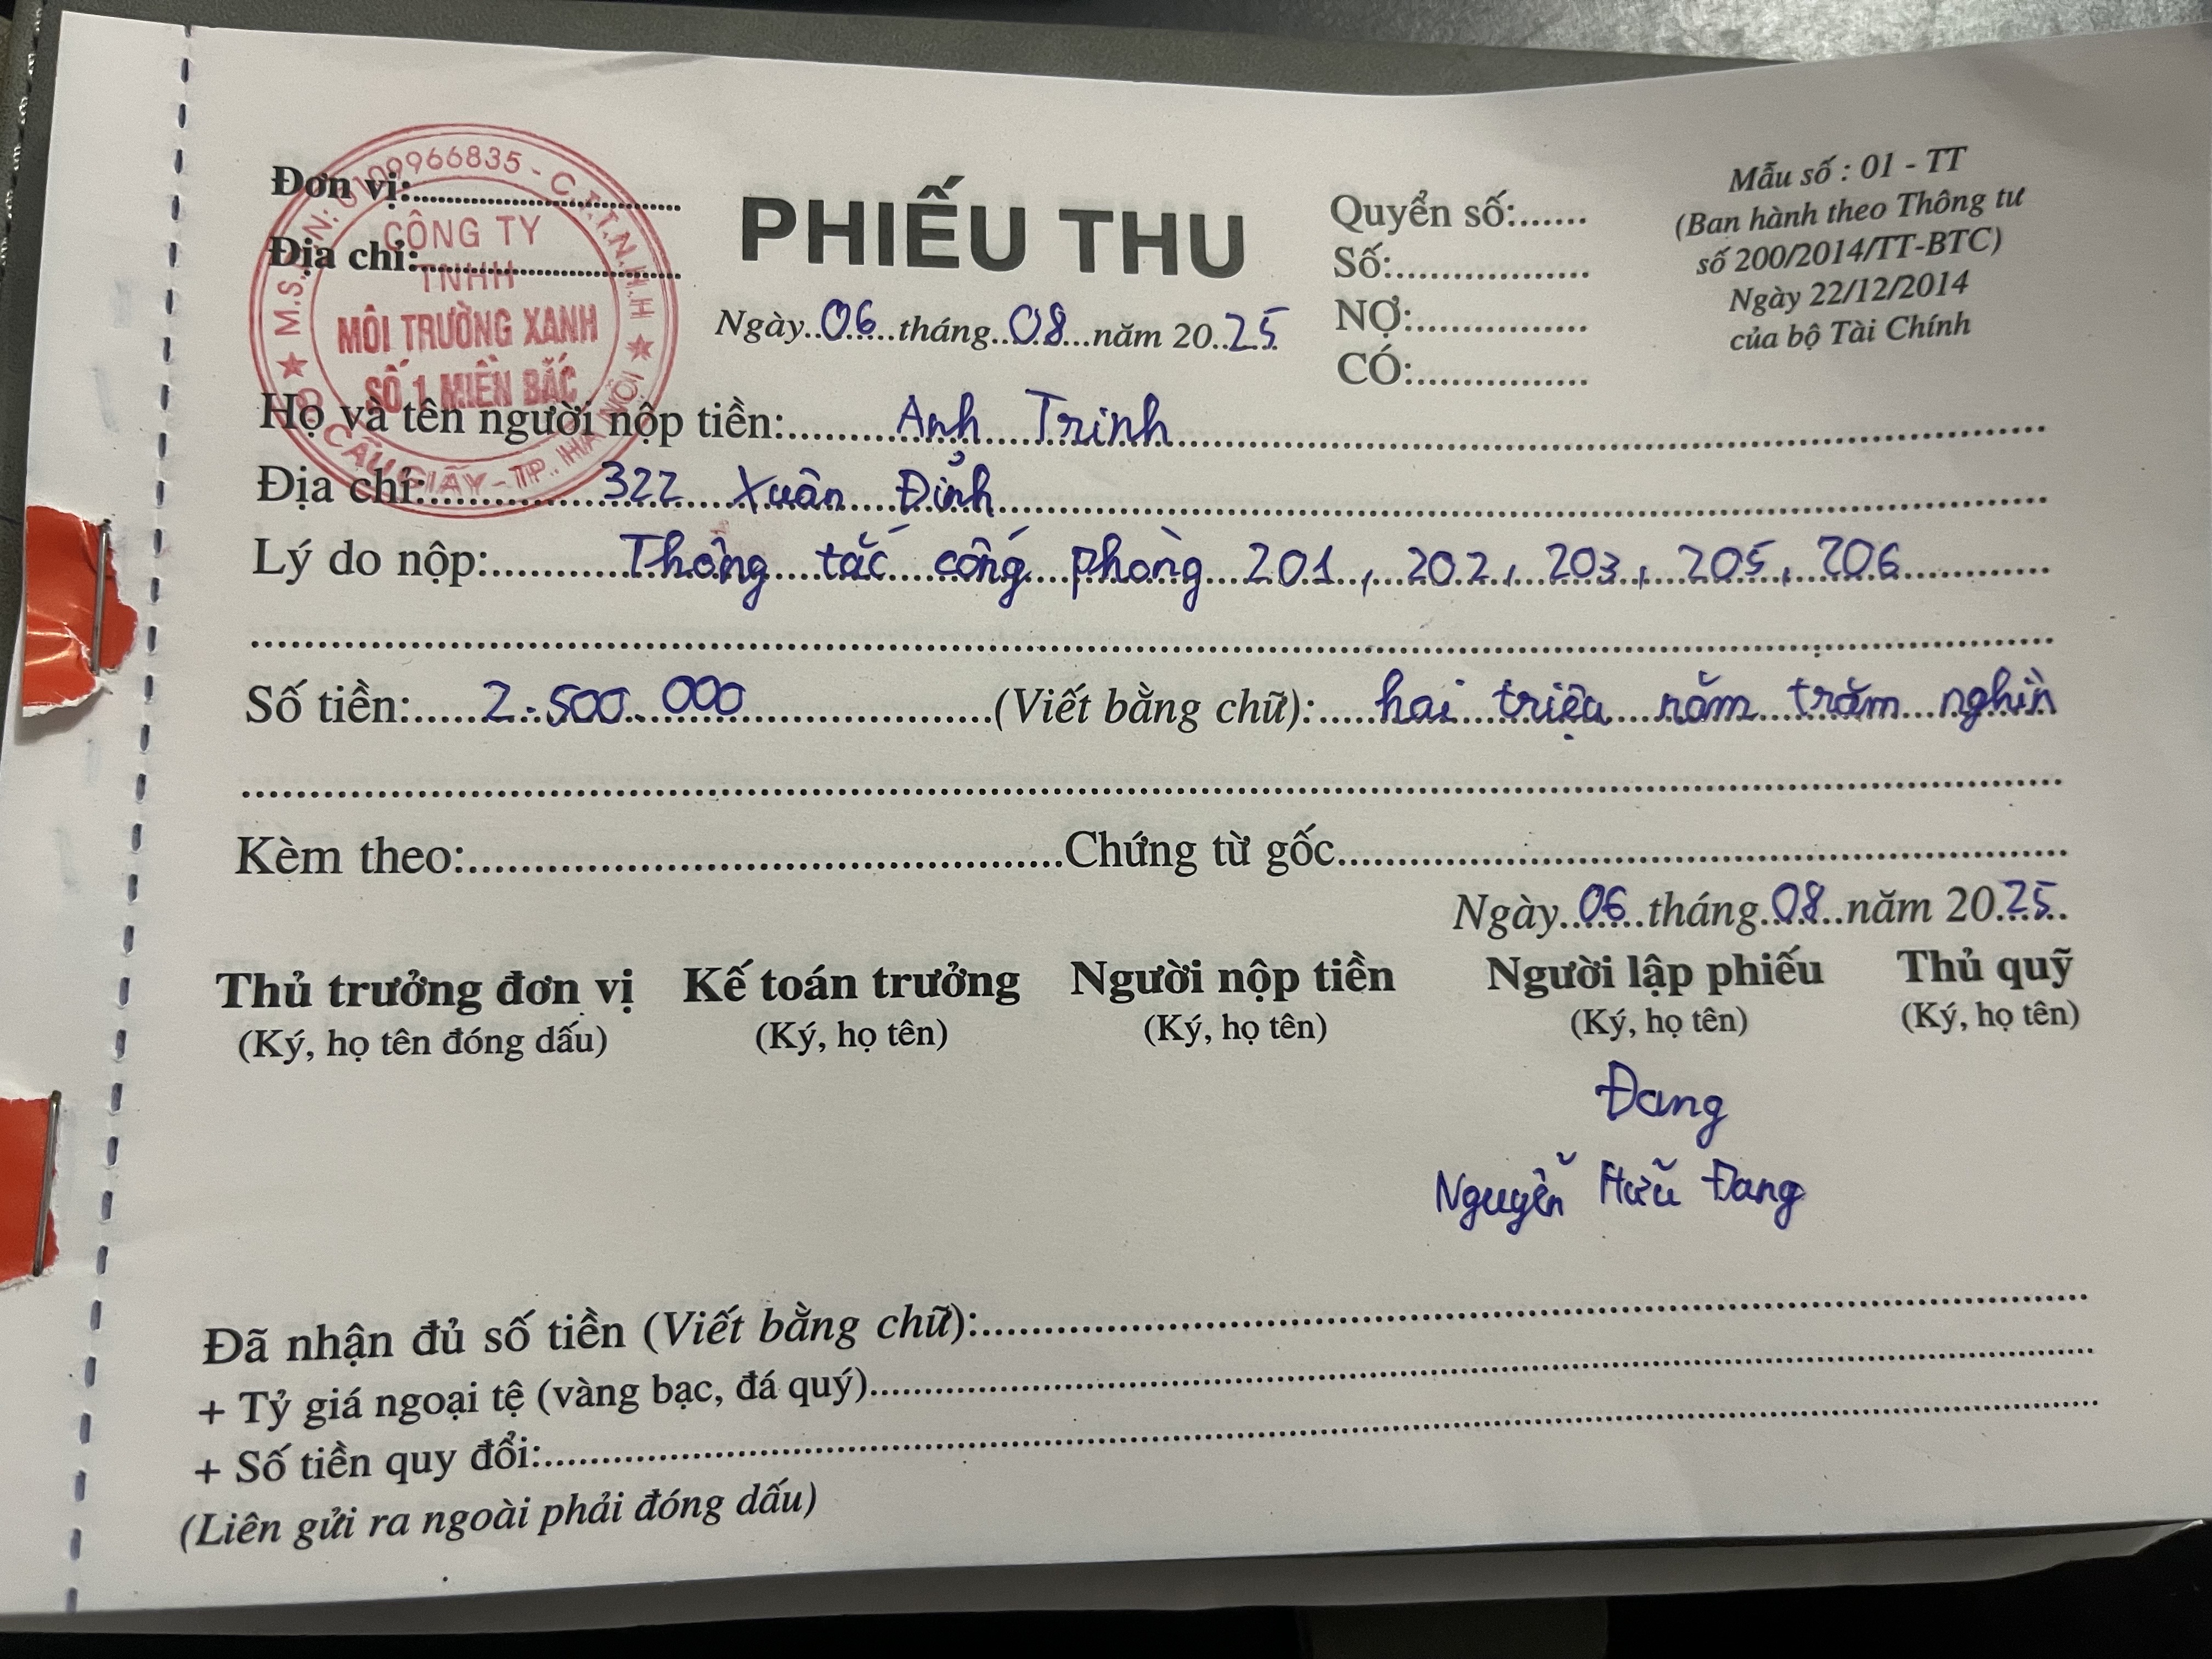 Đơn vị:..............................
Địa chỉ:..............................
M.S.D.N: 0109966835 - C.T.T.N.H.H
CÔNG TY
TNHH
MÔI TRƯỜNG XANH
SỐ 1 MIỀN BẮC
CẦU GIẤY - TP. HÀ NỘI
PHIẾU THU
Ngày 06 tháng 08 năm 2025
Quyển số:......
Số:.................
NỢ:...............
CÓ:...............
Mẫu số : 01 - TT
(Ban hành theo Thông tư
số 200/2014/TT-BTC)
Ngày 22/12/2014
của bộ Tài Chính
Họ và tên người nộp tiền: Anh Trinh
Địa chỉ: 322 Xuân Đỉnh
Lý do nộp: Thông tắc cống phòng 201, 202, 203, 205, 206
Số tiền: 2.500.000 (Viết bằng chữ): hai triệu năm trăm nghìn
Kèm theo:..............................Chứng từ gốc..............................
Ngày 06 tháng 08 năm 2025
Thủ trưởng đơn vị Kế toán trưởng Người nộp tiền Người lập phiếu Thủ quỹ
(Ký, họ tên đóng dấu) (Ký, họ tên) (Ký, họ tên) (Ký, họ tên) (Ký, họ tên)
Đang
Nguyễn Hữu Đang
Đã nhận đủ số tiền (Viết bằng chữ):..............................
+ Tỷ giá ngoại tệ (vàng bạc, đá quý)..............................
+ Số tiền quy đổi:..............................
(Liên gửi ra ngoài phải đóng dấu)